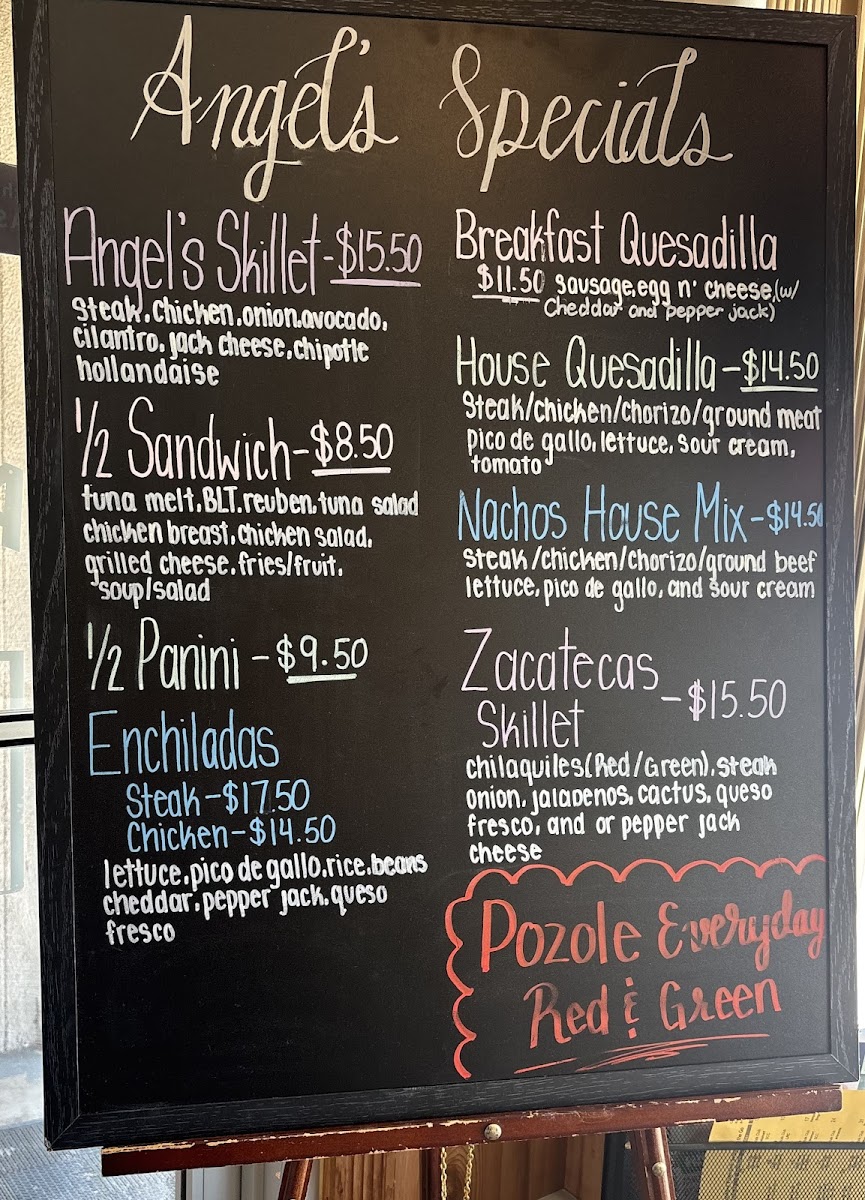 Angel's Specials
Angel's Skillet - $15.50
Steak, chicken, onion, avocado,
cilantro, jack cheese, chipotle
hollandaise
1/2 Sandwich - $8.50
tuna melt, BLT, reuben, tuna salad
chicken breast, chicken salad,
grilled cheese, fries/fruit,
soup/salad
1/2 Panini - $9.50
Enchiladas
Steak - $17.50
Chicken - $14.50
lettuce, pico de gallo, rice, beans
cheddar, pepper jack, queso
fresco
Breakfast Quesadilla
$11.50 sausage, egg n' cheese, (w/
Cheddar and pepper jack)
House Quesadilla - $14.50
Steak/chicken/chorizo/ground meat
pico de gallo, lettuce, sour cream,
tomato
Nachos House Mix - $14.50
steak/chicken/chorizo/ground beef
lettuce, pico de gallo, and sour cream
Zacatecas
Skillet - $15.50
chilaquiles (Red/Green), steak
onion, jalapenos, cactus, queso
fresco, and or pepper jack
cheese
Pozole Everyday
Red & Green